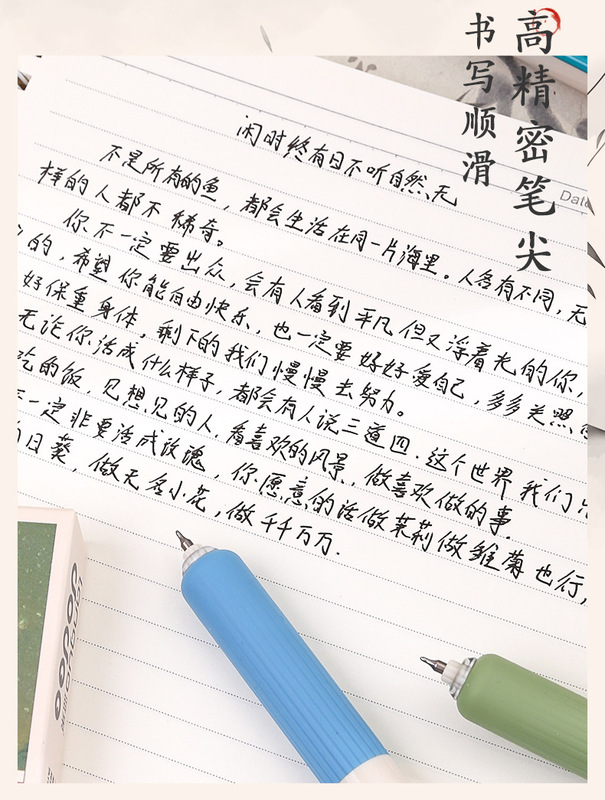 高精密笔尖
书写顺滑
Date
闲时终有日不听自然、无
不是所有的鱼，都会生活在同一片海里。人各有不同，无
样的人都不稀奇。
你不一定要出众，会有人看到平凡但又浮着光的你，
的，希望你能自由快乐，也一定要好好爱自己，多多关照
好保重身体，剩下的我们慢慢去努力。
无论你活成什么样子，都会有人说三道四．这个世界我们
吃的饭，见想见的人，看喜欢的风景，做喜欢做的事．
一定非要活成玫瑰，你愿意的话做茉莉做雏菊也行，
日葵，做无名小花，做千千万万．